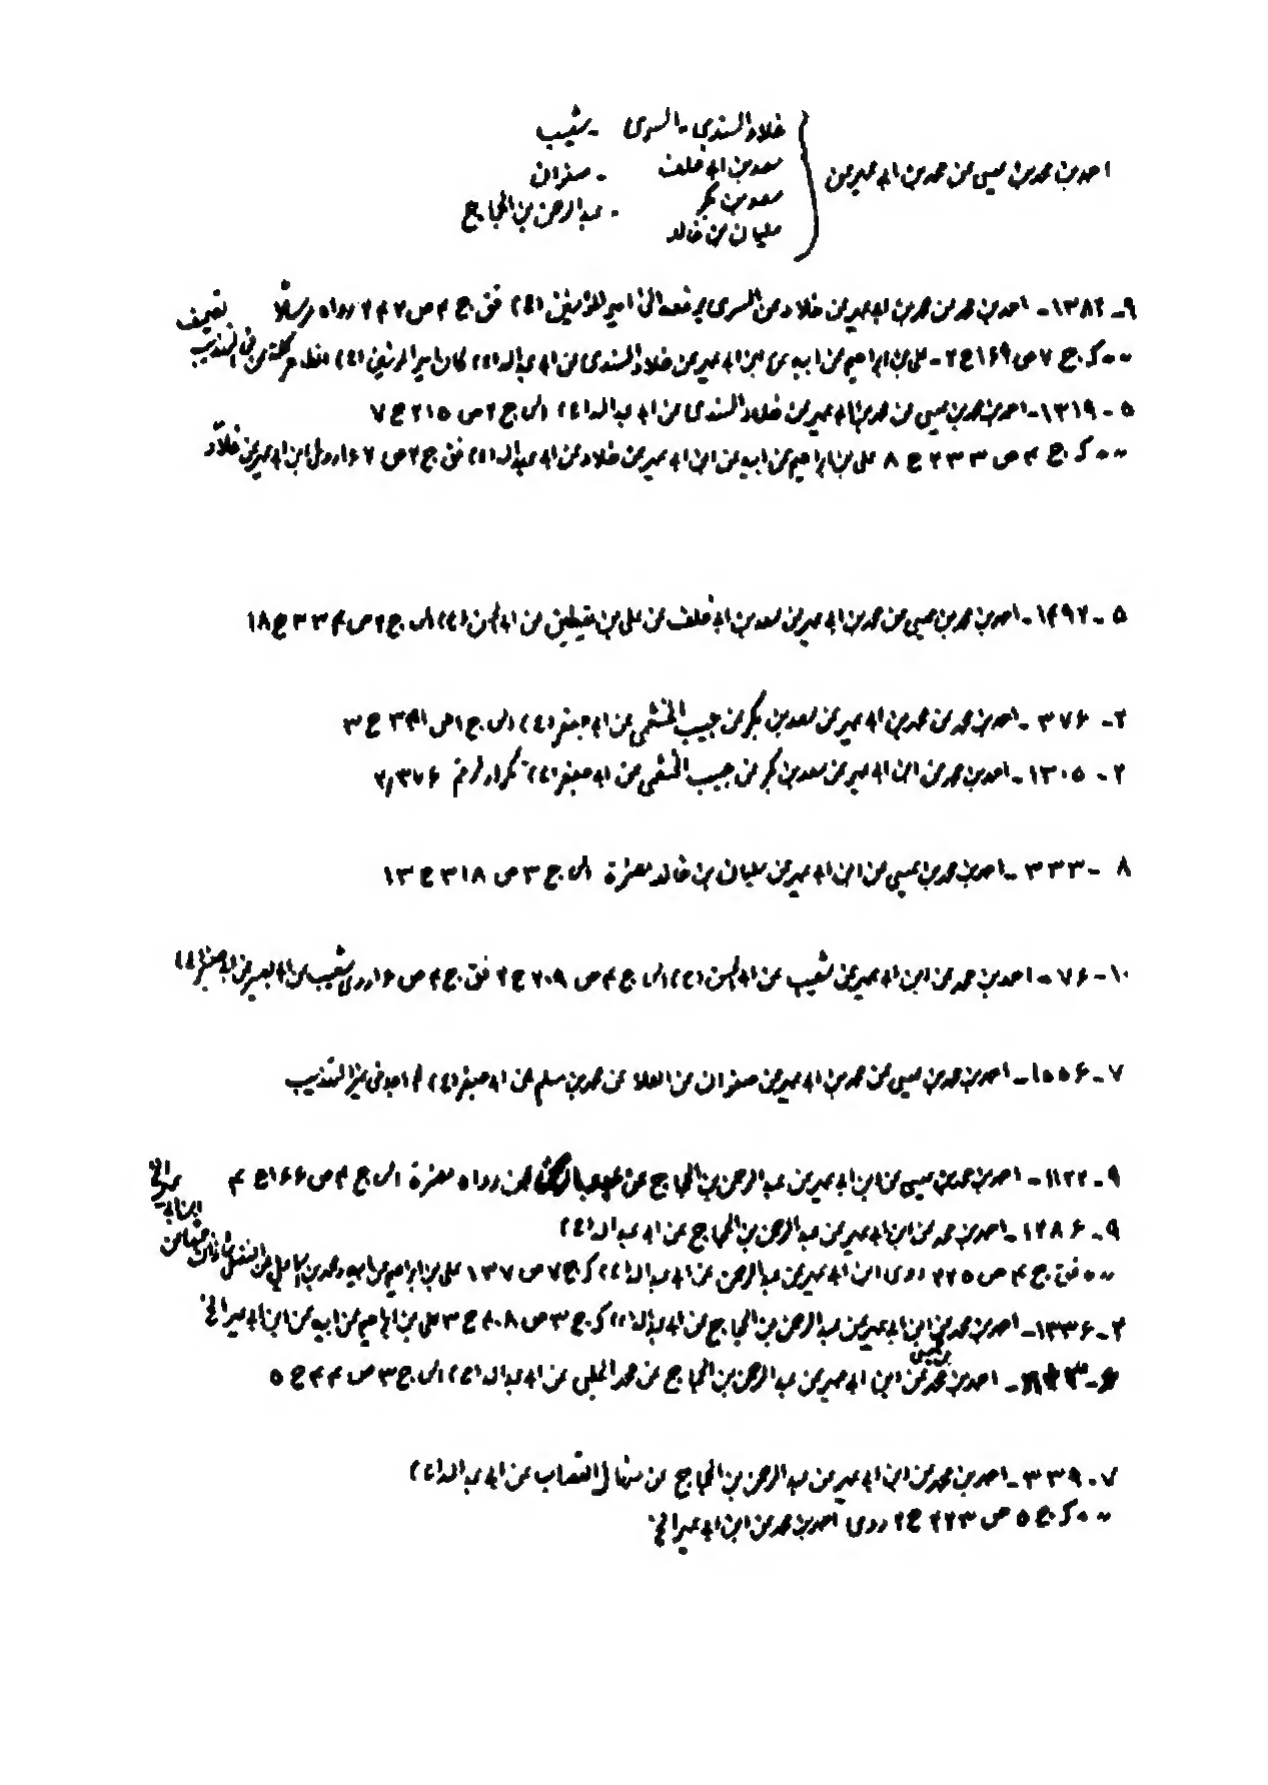 احمد بن محمد بن عيسى عن محمد بن ابى عمير عن
خلاد السندى - السرى - شعيب
سعد بن ابى خلف - صفوان
سعد بن بكر - عبد الرحمن بن الحجاج
سليمان بن خالد
٩ - ١٣٨٢ - احمد بن محمد عن محمد بن ابى عمير عن خلاد عن السرى يرفعه الى امير المؤمنين (ع) فق ج ٤ ص ٢٤٢ رواه مرسلًا
٠٠ ك ج ٧ ص ١٦٩ ح ٢ - على بن ابراهيم عن ابيه عن ابن ابى عمير عن خلاد السندى عن ابى عبد الله (ع) كان امير المؤمنين (ع) فى التهذيب تصحيف
٥ - ١٣١٩ - احمد بن محمد بن عيسى عن محمد بن ابى عمير عن خلاد السندى عن ابى عبد الله (ع) ال ج ٢ ص ٢١٥ ح ٧
٠٠ ك ج ٤ ص ٢٣٣ ح ٨ على بن ابراهيم عن ابيه عن ابن ابى عمير عن خلاد عن ابى عبد الله (ع) فق ج ٢ ص ١٦٧ روى ابن ابى عمير عن خلاد
٥ - ١٤٩٢ - احمد بن محمد بن عيسى عن محمد بن ابى عمير عن سعد بن ابى خلف عن على بن يقطين عن ابى الحسن (ع) ال ج ٢ ص ٣٣٤ ح ١٨
٢ - ٣٧٦ - احمد بن محمد عن محمد بن ابى عمير عن سعد بن بكر عن حبيب الخثعمى عن ابى جعفر (ع) ال ج ١ ص ٣٤١ ح ٣
٢ - ١٣٠٥ - احمد بن محمد عن ابن ابى عمير عن سعد بن بكر عن حبيب الخثعمى عن ابى جعفر (ع) تكرار لرقم ٢,٣٧٦
٨ - ٣٣٣ - احمد بن محمد بن عيسى عن ابن ابى عمير عن سليمان بن خالد مضمرة ال ج ٣ ص ٣١٨ ح ١٣
١٠ - ٧٦ - احمد بن محمد عن ابن ابى عمير عن شعيب عن ابى الحسن (ع) ال ج ٤ ص ٢٠٩ ح ٢ فق ج ٤ ص ١٦ روى شعيب عن ابى بصير عن ابى جعفر (ع)
٧ - ١٥٥٦ - احمد بن محمد بن عيسى عن محمد بن ابى عمير عن صفوان عن العلا عن محمد بن مسلم عن ابى جعفر (ع) لم اجد فى غير التهذيب
٩ - ١١٢٢ - احمد بن محمد بن عيسى عن ابن ابى عمير عن عبد الرحمن بن الحجاج عمن رواه مضمرة ال ج ٤ ص ١٦٦ ح ٤
٩ - ١٢٨٦ - احمد بن محمد عن ابن ابى عمير عن عبد الرحمن بن الحجاج عن ابى عبد الله (ع)
٠٠ فق ج ٤ ص ٢٢٥ روى ابن ابى عمير عن عبد الرحمن عن ابى عبد الله (ع) ك ج ٧ ص ١٣٧ على بن ابراهيم عن ابيه ومحمد بن اسماعيل عن الفضل بن شاذان جميعا عن ابن ابى عمير الخ
٢ - ١٣٣٦ - احمد بن محمد عن ابن ابى عمير عن عبد الرحمن بن الحجاج عن ابى عبد الله (ع) ك ج ٣ ص ٤٠٨ ح ٣ على بن ابراهيم عن ابيه عن ابن ابى عمير الخ
احمد بن محمد بن عيسى عن ابن ابى عمير عن عبد الرحمن بن الحجاج عن محمد الحلبى عن ابى عبد الله (ع) ال ج ٣ ص ٤٤ ح ٥
٧ - ٣٣٩ - احمد بن محمد عن ابن ابى عمير عن عبد الرحمن بن الحجاج عن منهال القصاب عن ابى عبد الله (ع)
٠٠ ك ج ٥ ص ٢٢٣ ح ٢ روى احمد بن محمد عن ابن ابى عمير الخ